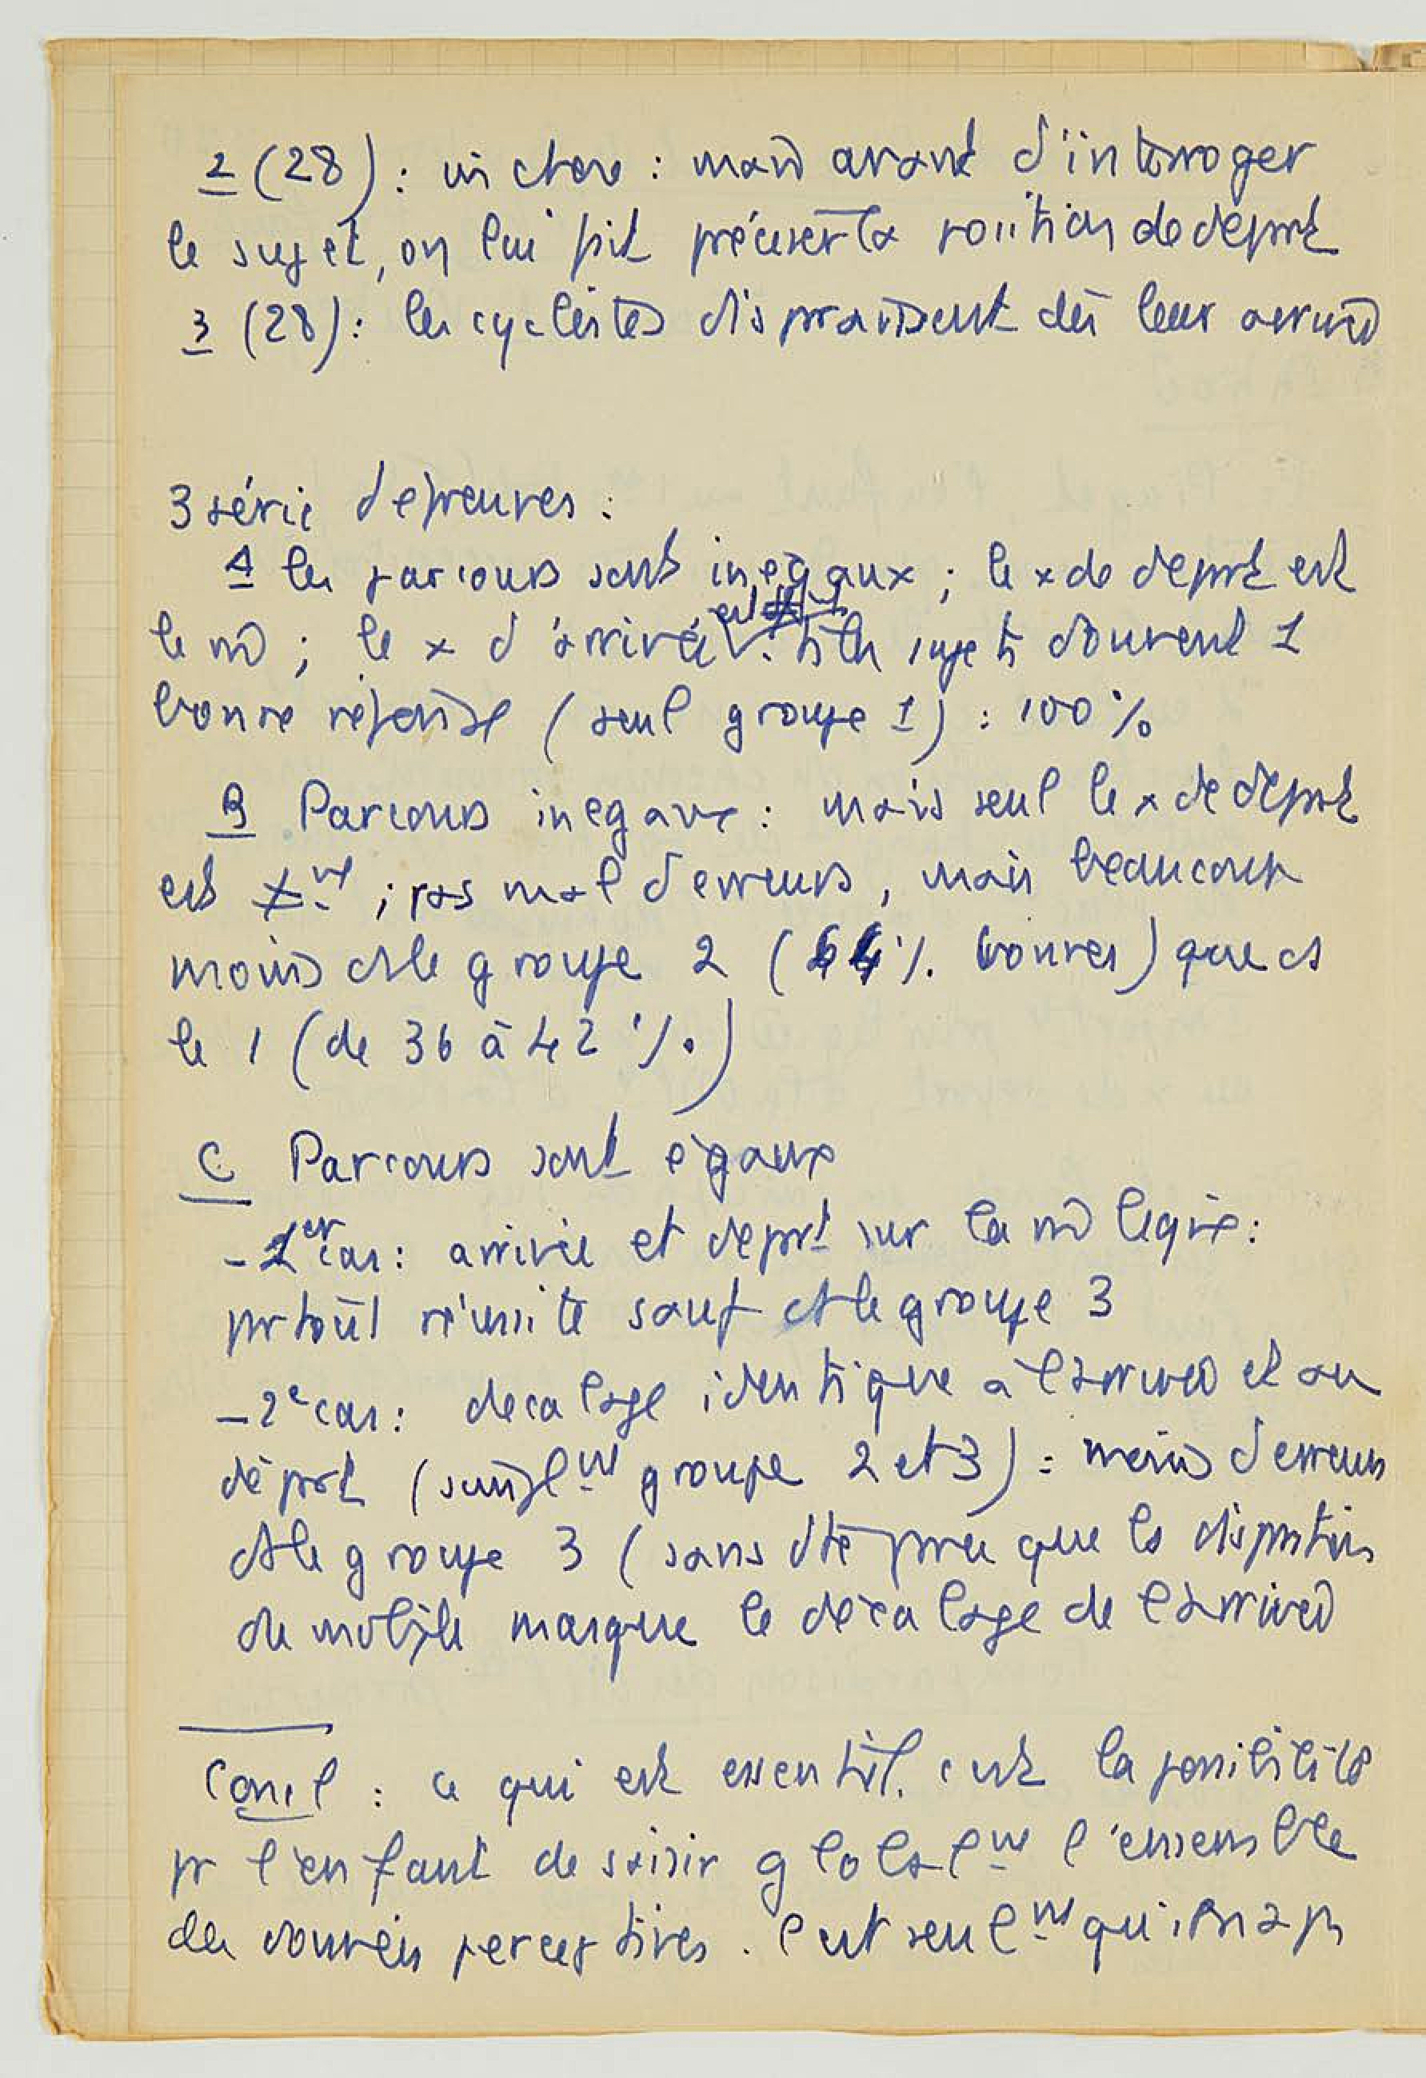 2 (28) : mais avant d'interroger
le sujet, on lui fait préciser la position de départ
3 (28) : les cyclistes disparaissent dès leur arrivée
3 série d'epreuves :
A les parcours sont inégaux ; le x de départ est
le m̂ ; le x d'arrivée est sujets donnent 1
bonne réponse (seul groupe 1) : 100 %
B Parcours inegaux : mais seul le x de départ
est ≠ nt ; pas mal d'erreurs, mais beaucoup
moins ds le groupe 2 (64 % bonnes) que ds
le 1 (de 36 à 42 %)
C Parcours sont égaux
- 1er cas : arrivée et départ sur la m̂ ligne :
partout réussite sauf ds le groupe 3
- 2e cas : decalage identique à l'arrivée et au
départ ( groupe 2 et 3) : moins d'erreurs
ds le groupe 3 (sans dte parce que la disparition
du mobile marque le décalage de l'arrivée
Concl : ce qui est essentiel, c'est la possibilité
pr l'enfant de saisir globalemt l'ensemble
des données perceptives. C'est seulemt qu'il n'a ps